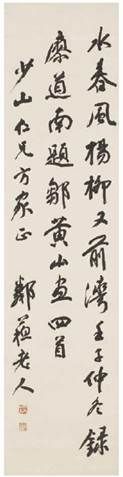 水春風楊柳又前灣壬子仲冬錄
廖道南題鄒黃山畫四首
少山仁兄方家正
鄰蘇老人